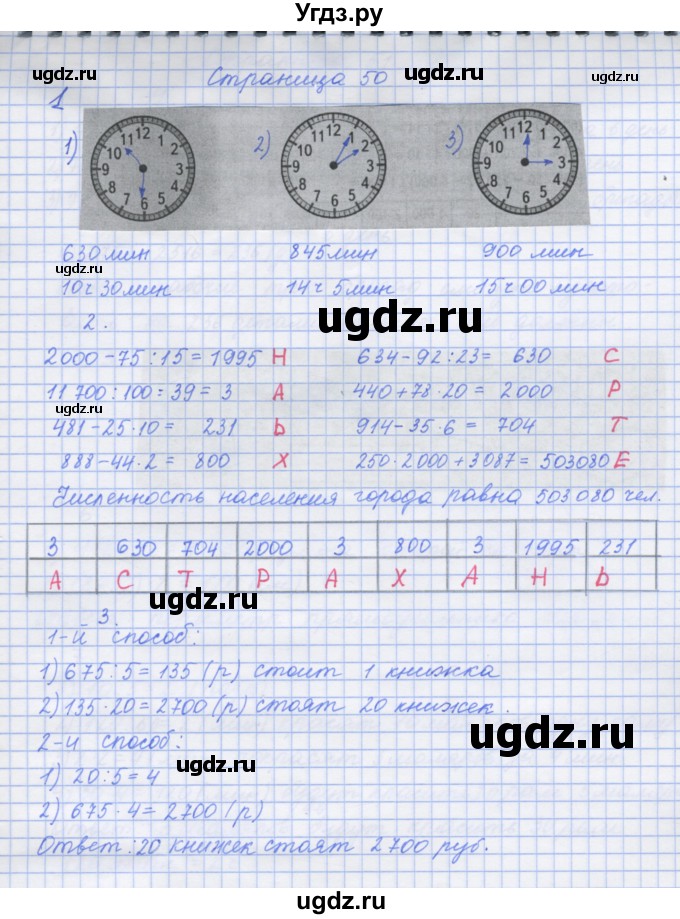 Угдз.ру
ugdz.ru ugdz.ru ugdz.ru
Страница 50
1
1) 2) 3)
12 1 2 3 4 5 6 7 8 9 10 11
12 1 2 3 4 5 6 7 8 9 10 11
12 1 2 3 4 5 6 7 8 9 10 11
630 мин 845 мин 900 мин
ugdz.ru
10 ч 30 мин 14 ч 5 мин 15 ч 00 мин
ugdz.ru
2.
2000 - 75 : 15 = 1995 Н 634 - 92 : 23 = 630 С
11 700 : 100 : 39 = 3 А 440 + 78 · 20 = 2000 Р
ugdz.ru
481 - 25 · 10 = 231 Ь 914 - 35 · 6 = 704 Т
888 - 44 · 2 = 800 Х 250 · 2000 + 3087 = 503080 Е
Численность населения города равна 503 080 чел.
3 630 704 2000 3 800 3 1995 231
А С Т Р А Х А Н Ь
ugdz.ru
3.
1-й способ:
1) 675 : 5 = 135 (р) стоит 1 книжка
2) 135 · 20 = 2700 (р) стоят 20 книжек.
2-й способ:
ugdz.ru
1) 20 : 5 = 4
ugdz.ru
2) 675 · 4 = 2700 (р)
Ответ: 20 книжек стоят 2700 руб.
ugdz.ru